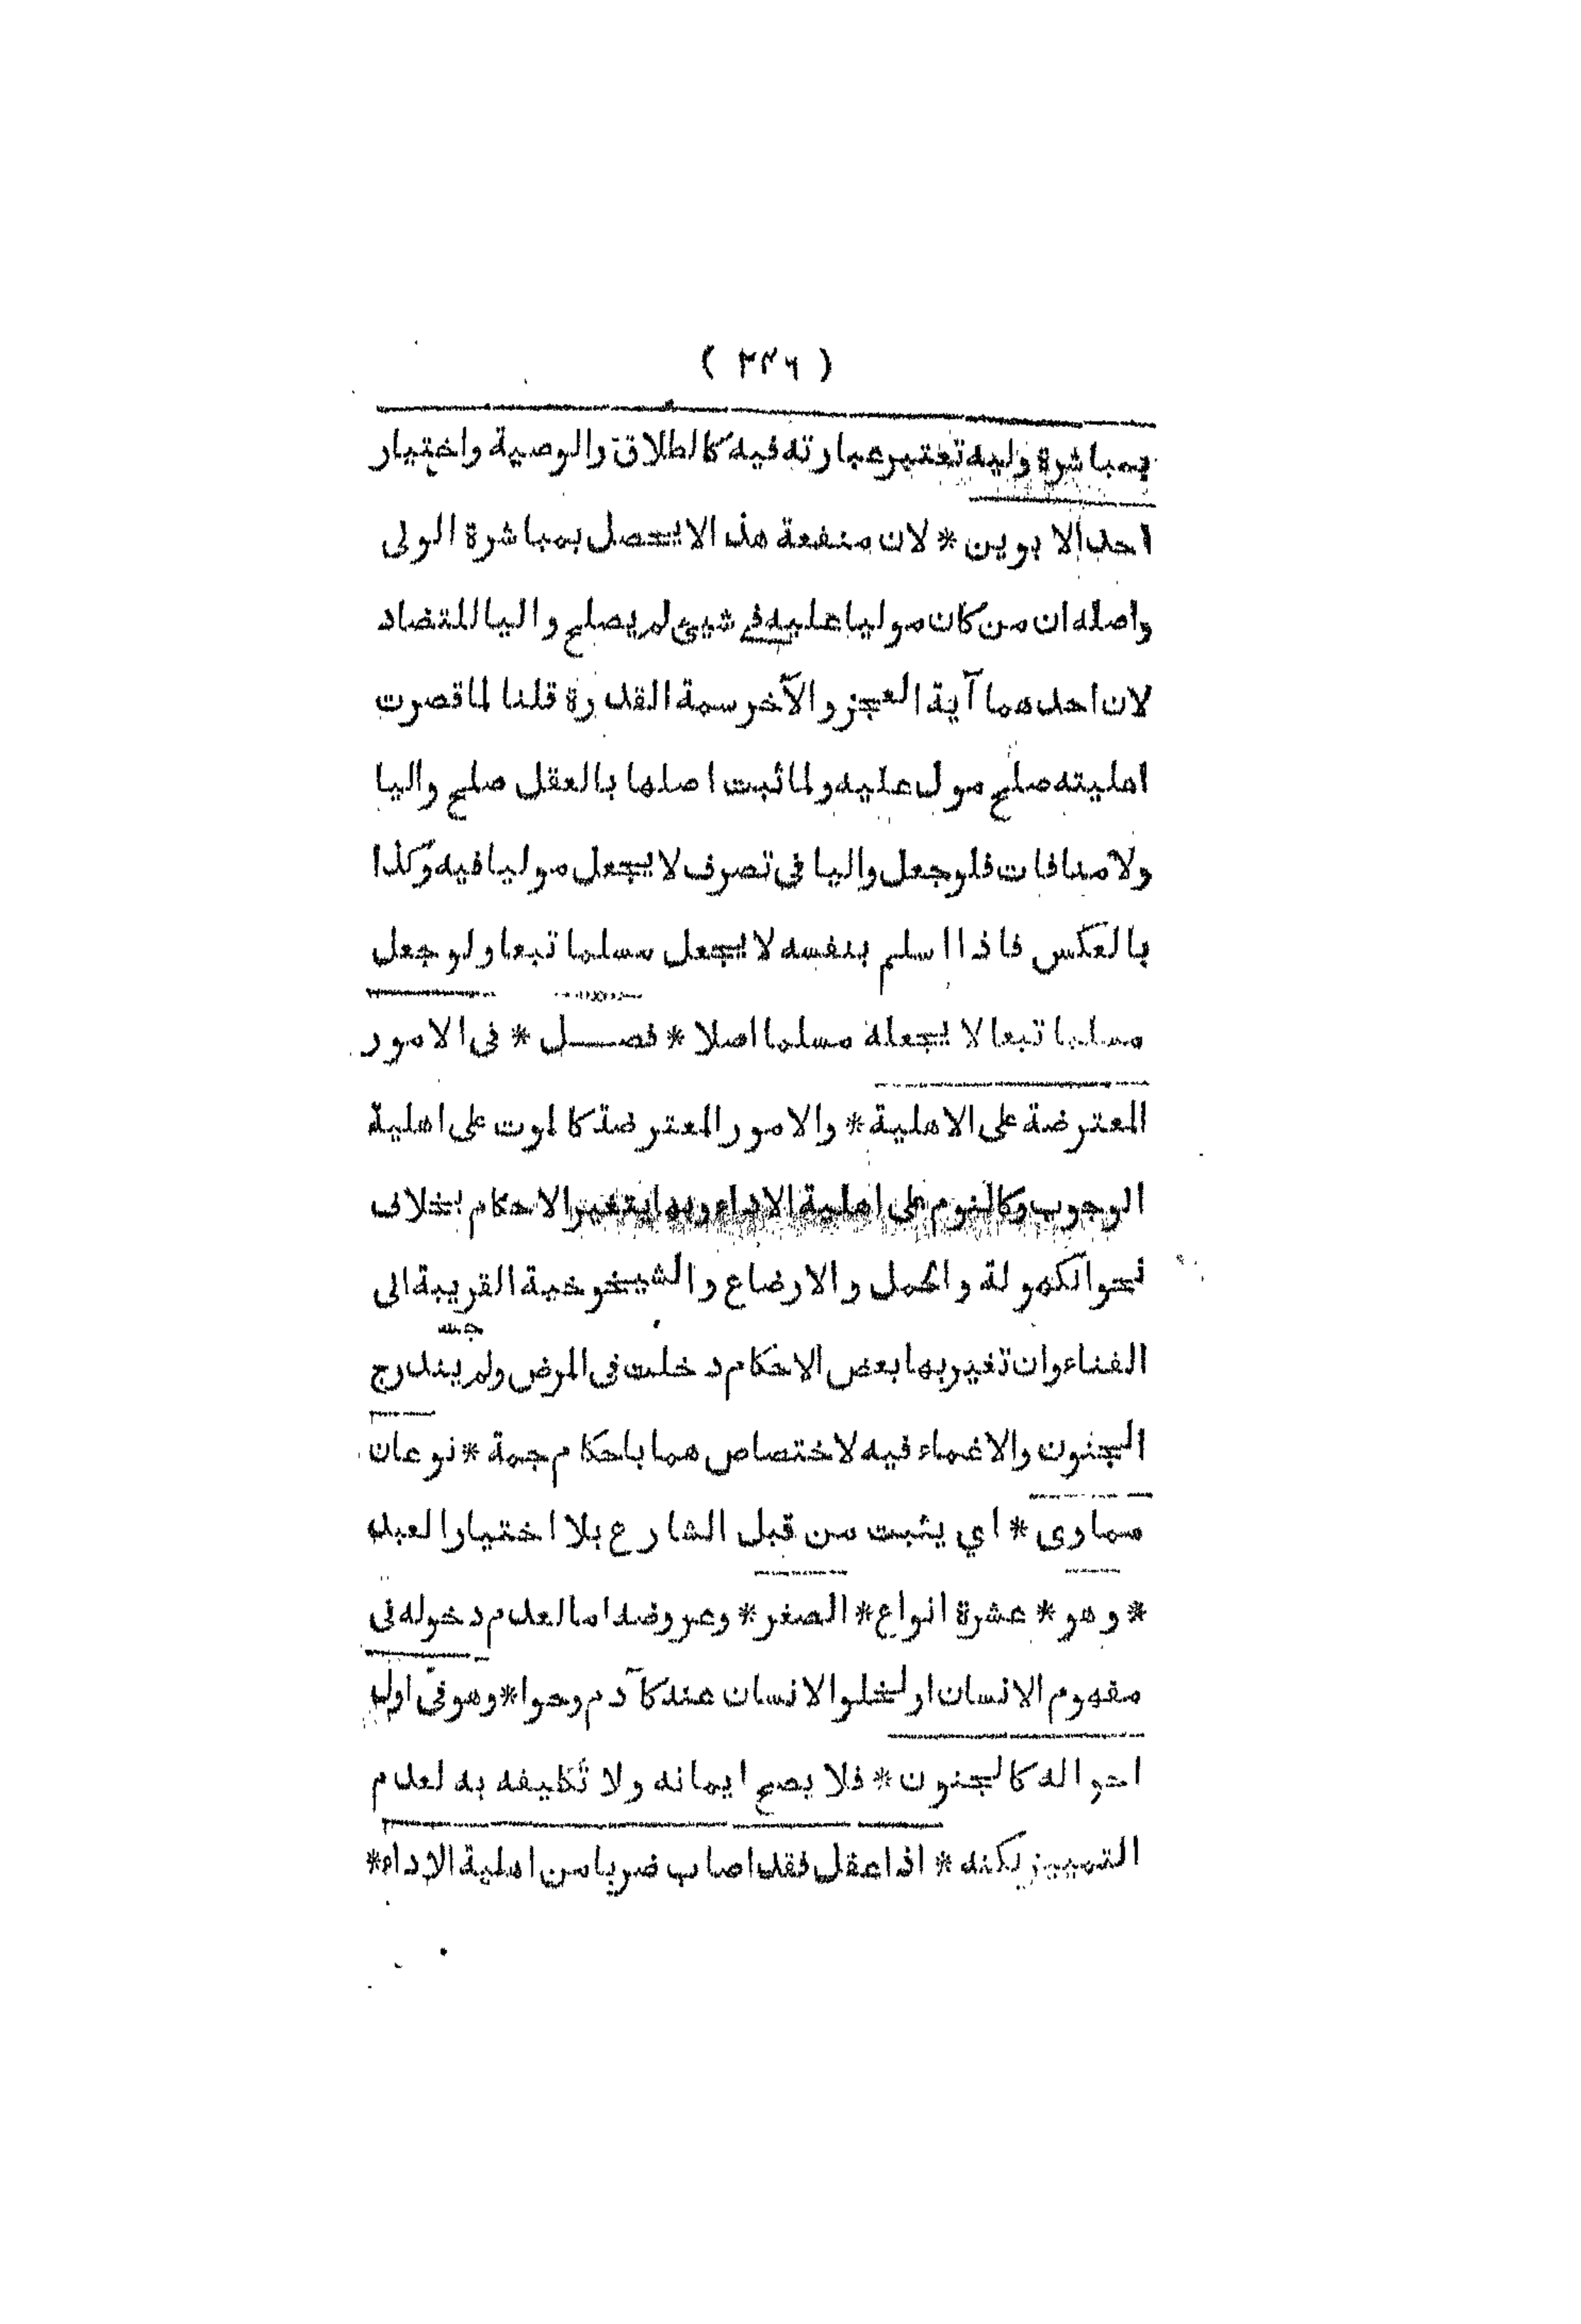 ( ٣٢٦ )
بمباشرة وليه تعتبر عبارته فيه كالطلاق والوصية واختيار
احد الابوين * لان منفعة هذا لايحصل بمباشرة الولى
واصله ان من كان موليا عليه فى شيئ لم يصلح واليا للتضاد
لان احدهما آية العجز والآخر سمة القدرة قلنا لما قصرت
اهليته صلح مولى عليه ولما ثبت اصلها بالعقل صلح واليا
ولا منافات فلو جعل واليا فى تصرف لا يجعل موليا فيه وكذا
بالعكس فاذا اسلم بنفسه لا يجعل مسلما تبعا ولو جعل
مسلما تبعا لا يجعله مسلما اصلا * فصــل * فى الامور
المعترضة على الاهلية * والامور المعترضة كالموت على اهلية
الوجوب وكالنوم على اهلية الاداء وبها يتغير الاحكام بخلاف
نحو الكهولة والحمل والارضاع والشيخوخية القريبة الى
الفناء وان تغير بها بعض الاحكام دخلت فى المرض ولم يندرج
الجنون والاغماء فيه لاختصاص هما باحكام جمة * نوعان
سماوى * اي يثبت من قبل الشارع بلا اختيار العبد
* وهو * عشرة انواع * الصغر * وعروضه اما لعدم دخوله فى
مفهوم الانسان او لخلو الانسان عنه كآدم وحوا * وهو فى اول
احواله كالجنون * فلا يصح ايمانه ولا تكليفه به لعدم
التمييز لكنه * اذا عقل فقد اصاب ضربا من اهلية الاداء *